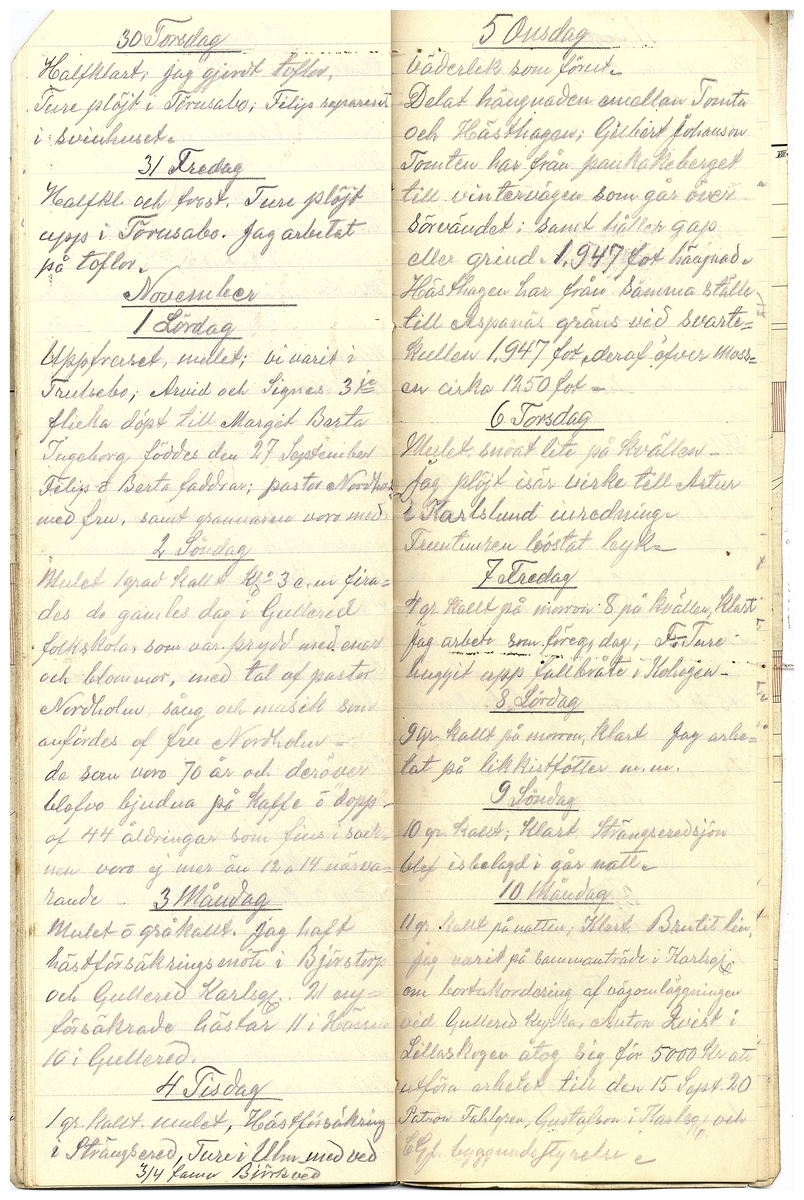 30 Torsdag
Halfklart; jag gjordt toflor,
Ture plöjt i Törusabo; Filip reparerat
i svinhuset.
31 Fredag
Halfkl. och frost. Ture plöjt
upp i Törusabo. Jag arbetat
på toflor.
November
1 Lördag
Uppfruset, mullet; vi varit i
Trulsebo; Arvid och Signes 3je
flicka döpt till Margit Berta
Ingeborg föddes den 27 September
Filip o Berta faddrar; pastor Nordholm
med fru, samt grannarne voro med
2 Söndag
Mulet 1grad kallt kl. 3 e.m fira=
des de gamles dag i Gullered
folkskola, som var prydd med enar
och blommor, med tal af pastor
Nordholm sång och musik som
anfördes af fru Nordholm –
de som voro 70 år och deröver
blefvo bjudna på kaffe o "dopp"
af 44 åldringar som fins i sock=
nen voro ej mer än 12 a 14 närva=
rande
3 Måndag
Mulet o gråkallt. jag haft
hästförsäkringsmöte i Björstorp
och Gullered Karlsg. 21 ny=
försäkrade hästar 11 i
10 i Gullered.
4 Tisdag
1 gr. kallt mulet, Hästförsäkring
i Strängsered, Ture i Ulm med ved
3/4 famn Björkved
5 Onsdag
Väderlek som förut.
Delat hängnaden emellan Tomta
och Hästhagen; Gilbert Johanson
Tomten har från pankakeberget
till vintervägen som går över
Sörvändet; samt håller gap
eller grind. 1,947 fot hängnad.
Hästhagen har från samma ställe
till Aspanäs gräns vid svarte=
kullen 1,947 fot, deraf öfver moss=
en cirka 1250 fot –
6 Torsdag
Mulet snöat lite på kvällen –
Jag plöjt isär virke till Artur
i Karlslund inredning.
Fruntimren löostat byk –
7 Fredag
4 gr. kallt på morron 8 på kvällen, klart
Jag arbete som föreg. dag; F. Ture
huggit upp fallbråte i Kohagen –
8 Lördag
9 gr. kallt på morron, klart Jag arbe=
tat på likkistfötter m.m.
9 Söndag
10 gr. kallt; klart Strängseredsjön
blef isbelagd i går natt.
10 Måndag
11 gr. kallt på natten; klart Brutit lin,
jag varit på sammanträde i Karlsg.
om bortakordering af vägomläggningen
vid Gullered kyrka, Anton Kvist i
Lillaskogen åtog sig för 5000 kr att
utföra arbetet till den 15 Sept. 20
Patron Tahlgren, Gustafson i Karlsg. och
byggnadsstyrelse